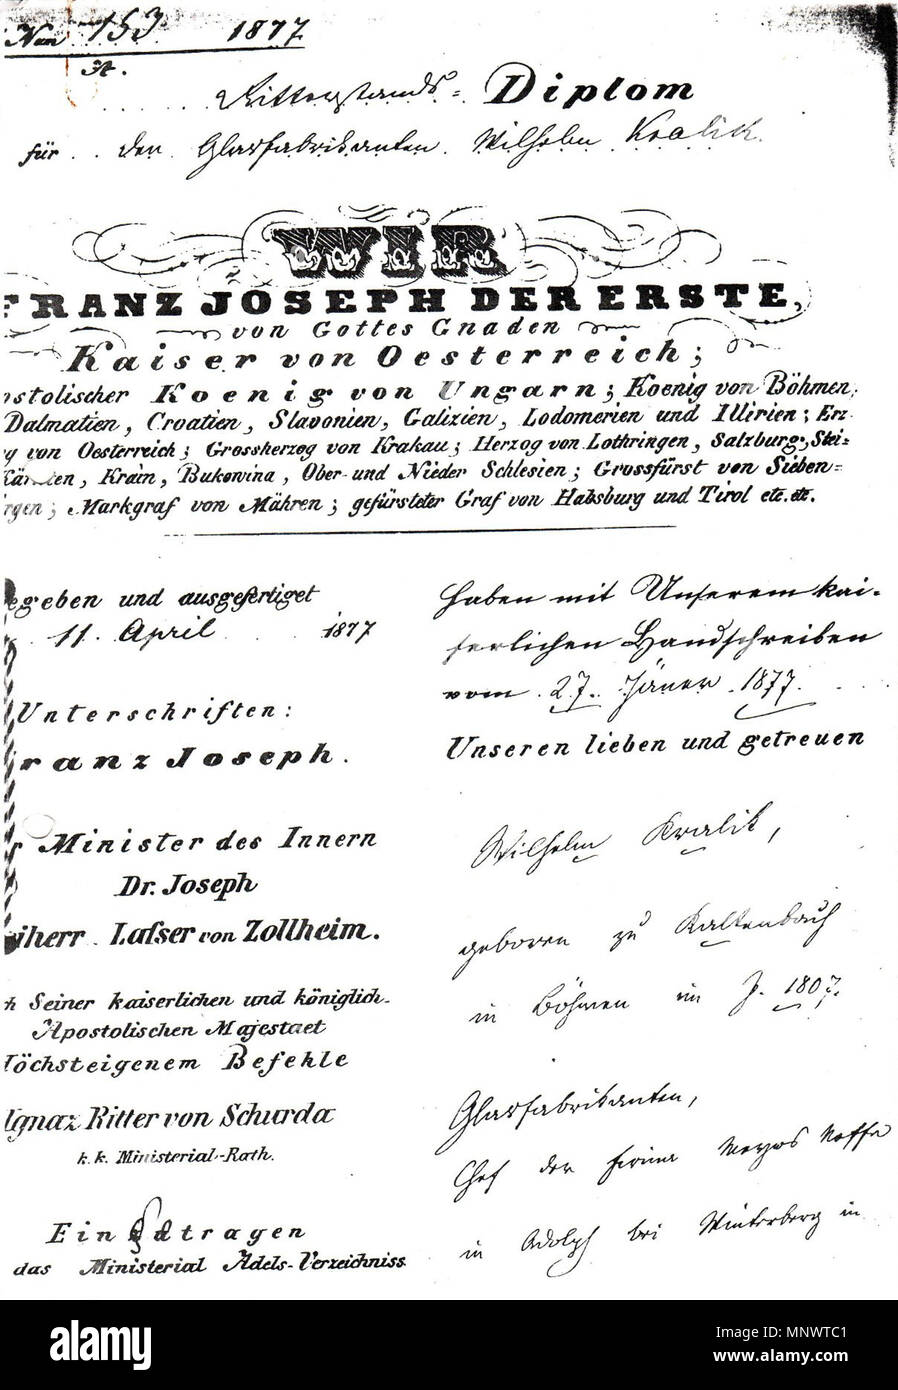 Num 153 1877
A.
Ritterstands= Diplom
für den Glasfabrikanten Wilhelm Kralik
WIR
FRANZ JOSEPH DER ERSTE,
von Gottes Gnaden
Kaiser von Oesterreich;
ostolischer Koenig von Ungarn; Koenig von Böhmen,
Dalmatien, Croatien, Slavonien, Galizien, Lodomerien und Illirien; Erz-
g von Oesterreich; Grossherzog von Krakau; Herzog von Lothringen, Salzburg, Stei=
Kärnten, Krain, Bukovina, Ober- und Nieder Schlesien; Grossfürst von Sieben=
rgen; Markgraf von Mähren; gefürsteter Graf von Habsburg und Tirol etc. etc.
egeben und ausgefertiget
11. April 1877
Unterschriften:
Franz Joseph.
r Minister des Innern
Dr. Joseph
eiherr Laſser von Zollheim.
h Seiner kaiserlichen und königlich-
Apostolischen Majestaet
Höchsteigenem Befehle
Ignaz Ritter von Schurda
k. k. Ministerial-Rath.
Eingetragen
das Ministerial Adels-Verzeichniss.
Haben mit Unserem kai-
serlichen Handschreiben
vom 27. Jäner 1877.
Unseren lieben und getreuen
Wilhelm Kralik,
geboren zu Kaltenbach
in Böhmen im J. 1807.
Glasfabrikanten,
Chef der Firma Meyrs Neffe
in Adolph bei Winterberg in
a
alamy stock photo
MNWTC1
www.alamy.com